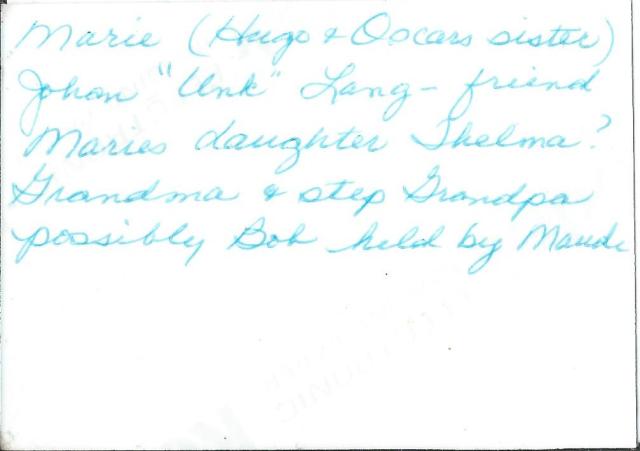 Marie (Hugo & Oscars sister)
Johan "Unk" Lang - friend
Maries daughter Thelma?
Grandma & step Grandpa
possibly Bob held by Maude